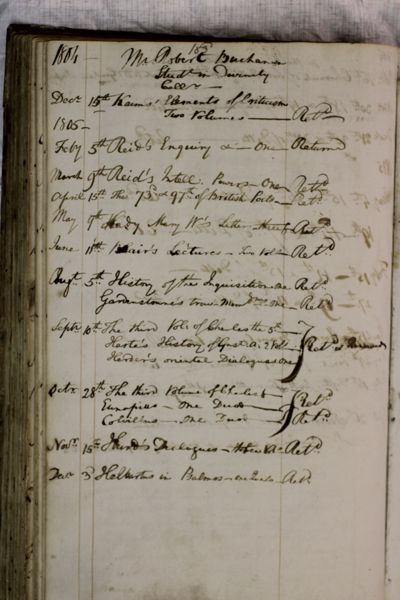 1804 Mr. Robert Buchanan
Studt in Divinity
Decr 15th Kaims' Elements of Criticism
Two Volumes — Retd
1805 —
Feby 5th Reid's Enquiry — One — Returnd
March 9th Reid's Intell. Powers — One — Retd
April 15th The 73d & 97th of British Poets — Retd
May 9th Lady Mary W's Letters — Retd
June 11th Blair's Lectures — Two Vols — Retd
Augt 5th History of the Inquisition One Retd
Gardenstone's One — Retd
Septr 10th The third Vol: of Charles the 5th —
Harte's History of 2 Vols Retd
Herder's oriental Dialogues One
Octr 28th The third Volume of Charles 5
Eutropius — One Duod Retd
One Duod Retd
Novr 15th Hurd's Dialogues — Retd
Decr 3d in Psalmos — Retd